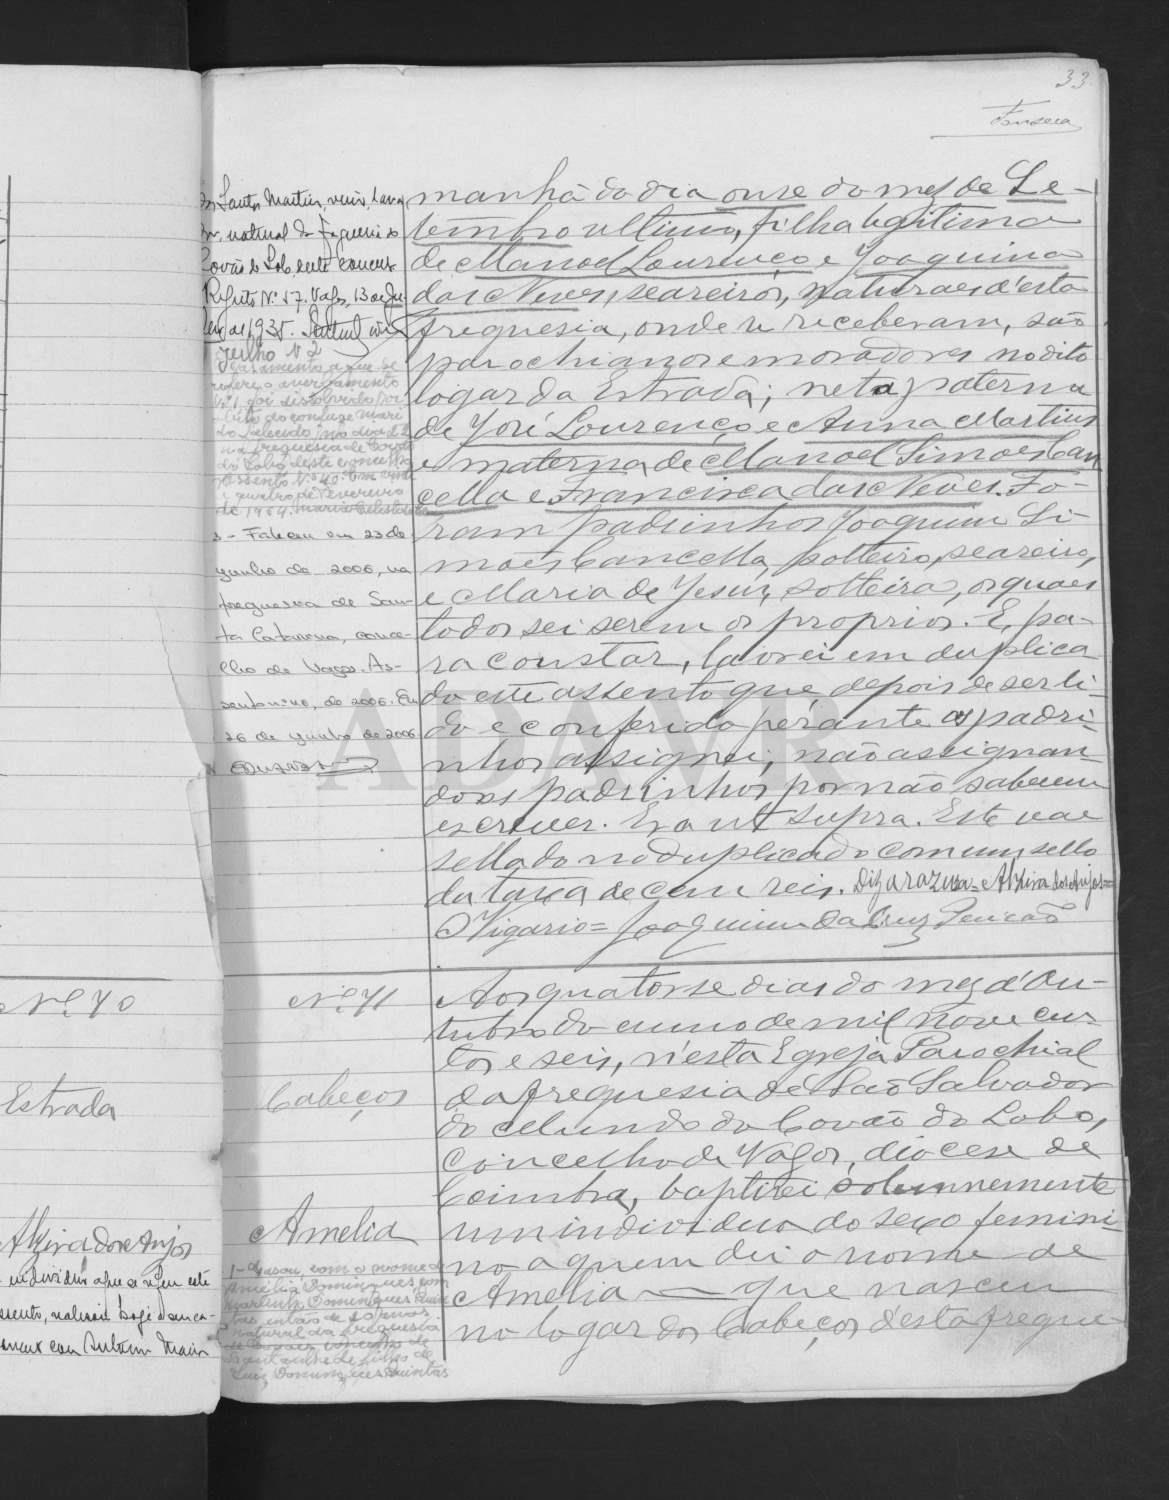 33
Fonseca
manhã do dia onse do mez de Se-
tembro ultimo, filha legitima
de Manoel Lourenço e Joaquina
das Neves, seareiros, naturaes d'esta
freguesia, onde se receberam, são
parochianos e moradores no dito
logar da Estrada; neta paterna
de José Lourenço e Anna Martins
e materna de Manoel Simões Can
cella e Francisca das Neves. Fo-
ram padrinhos Joaquim Si-
mões Cancella, solteiro, seareiro,
e Maria de Jesus, solteira, os quaes
todos sei serem os proprios. E, pa-
ra constar, lavrei em duplica
do este assento que, depois de ser li-
do e conferido perante os padri-
nhos assignei, não assignan-
do os padrinhos por não saberem
escrever. Era ut supra. Este vae
sellado no duplicado com um sello
da taxa de cem reis. Diz a raza = Alzira dos Anjos =
O Vigario = Joaquim da Cruz
dos Santos Martins,
natural da freguesia do
Covão do Lobo, deste concelho
Registo Nº 57. Vagos, 13 de Ju-
lho de 1935.
Julho Nº 2
casamento a que se
refere o averbamento
Nº 1 foi dissolvido por
óbito do conjuge mari
do falecido no dia 22
na freguesia de Covão
do Lobo deste concelho
Assento Nº 40. Em vinte
e quatro de Fevereiro
de 1964.
3 - Faleceu em 23 de
junho de 2006, na
freguesia de San-
ta Catarina, conce-
lho de Vagos. As-
sento nº 40, de 2006. Em
26 de junho de 2006
Nº 70
Estrada
Alzira dos Anjos
individuo a que se refere este
assento, realisou hoje o seu ca-
samento com Antonio Maria
Nº 71
Cabeços
Amelia
1 - Casou com o nome de
Amélia Domingues com
Martinho Domingues
natural da freguesia
Luiz Domingues
Aos quatorse dias do mez d'Ou-
tubro do anno de mil nove cen-
tos e seis, n'esta Egreja Parochial
da freguesia de São Salvador
do Mundo do Covão do Lobo,
concelho de Vagos, diocese de
Coimbra, baptisei solemnemente
um individuo do sexo femini-
no a quem dei o nome de
Amelia — que nasceu
no logar dos Cabeços d'esta fregue
ADAVR